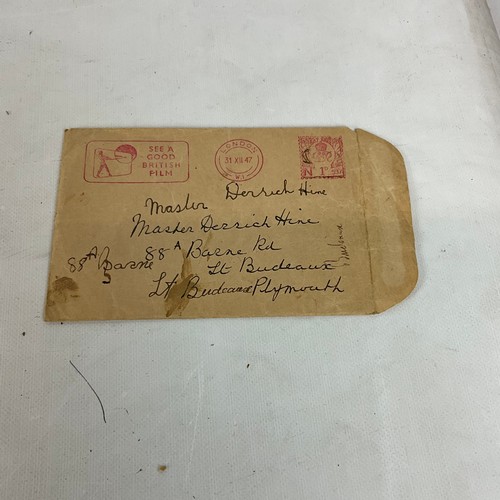 SEE A
GOOD
BRITISH
FILM
LONDON
31 XII 47
W.1.
N 1D
Master Derrich Hine
Master Derrich Hine
88A Barne Rd
88A Barne
St Budeaux
St Budeaux Plymouth
Budeaux